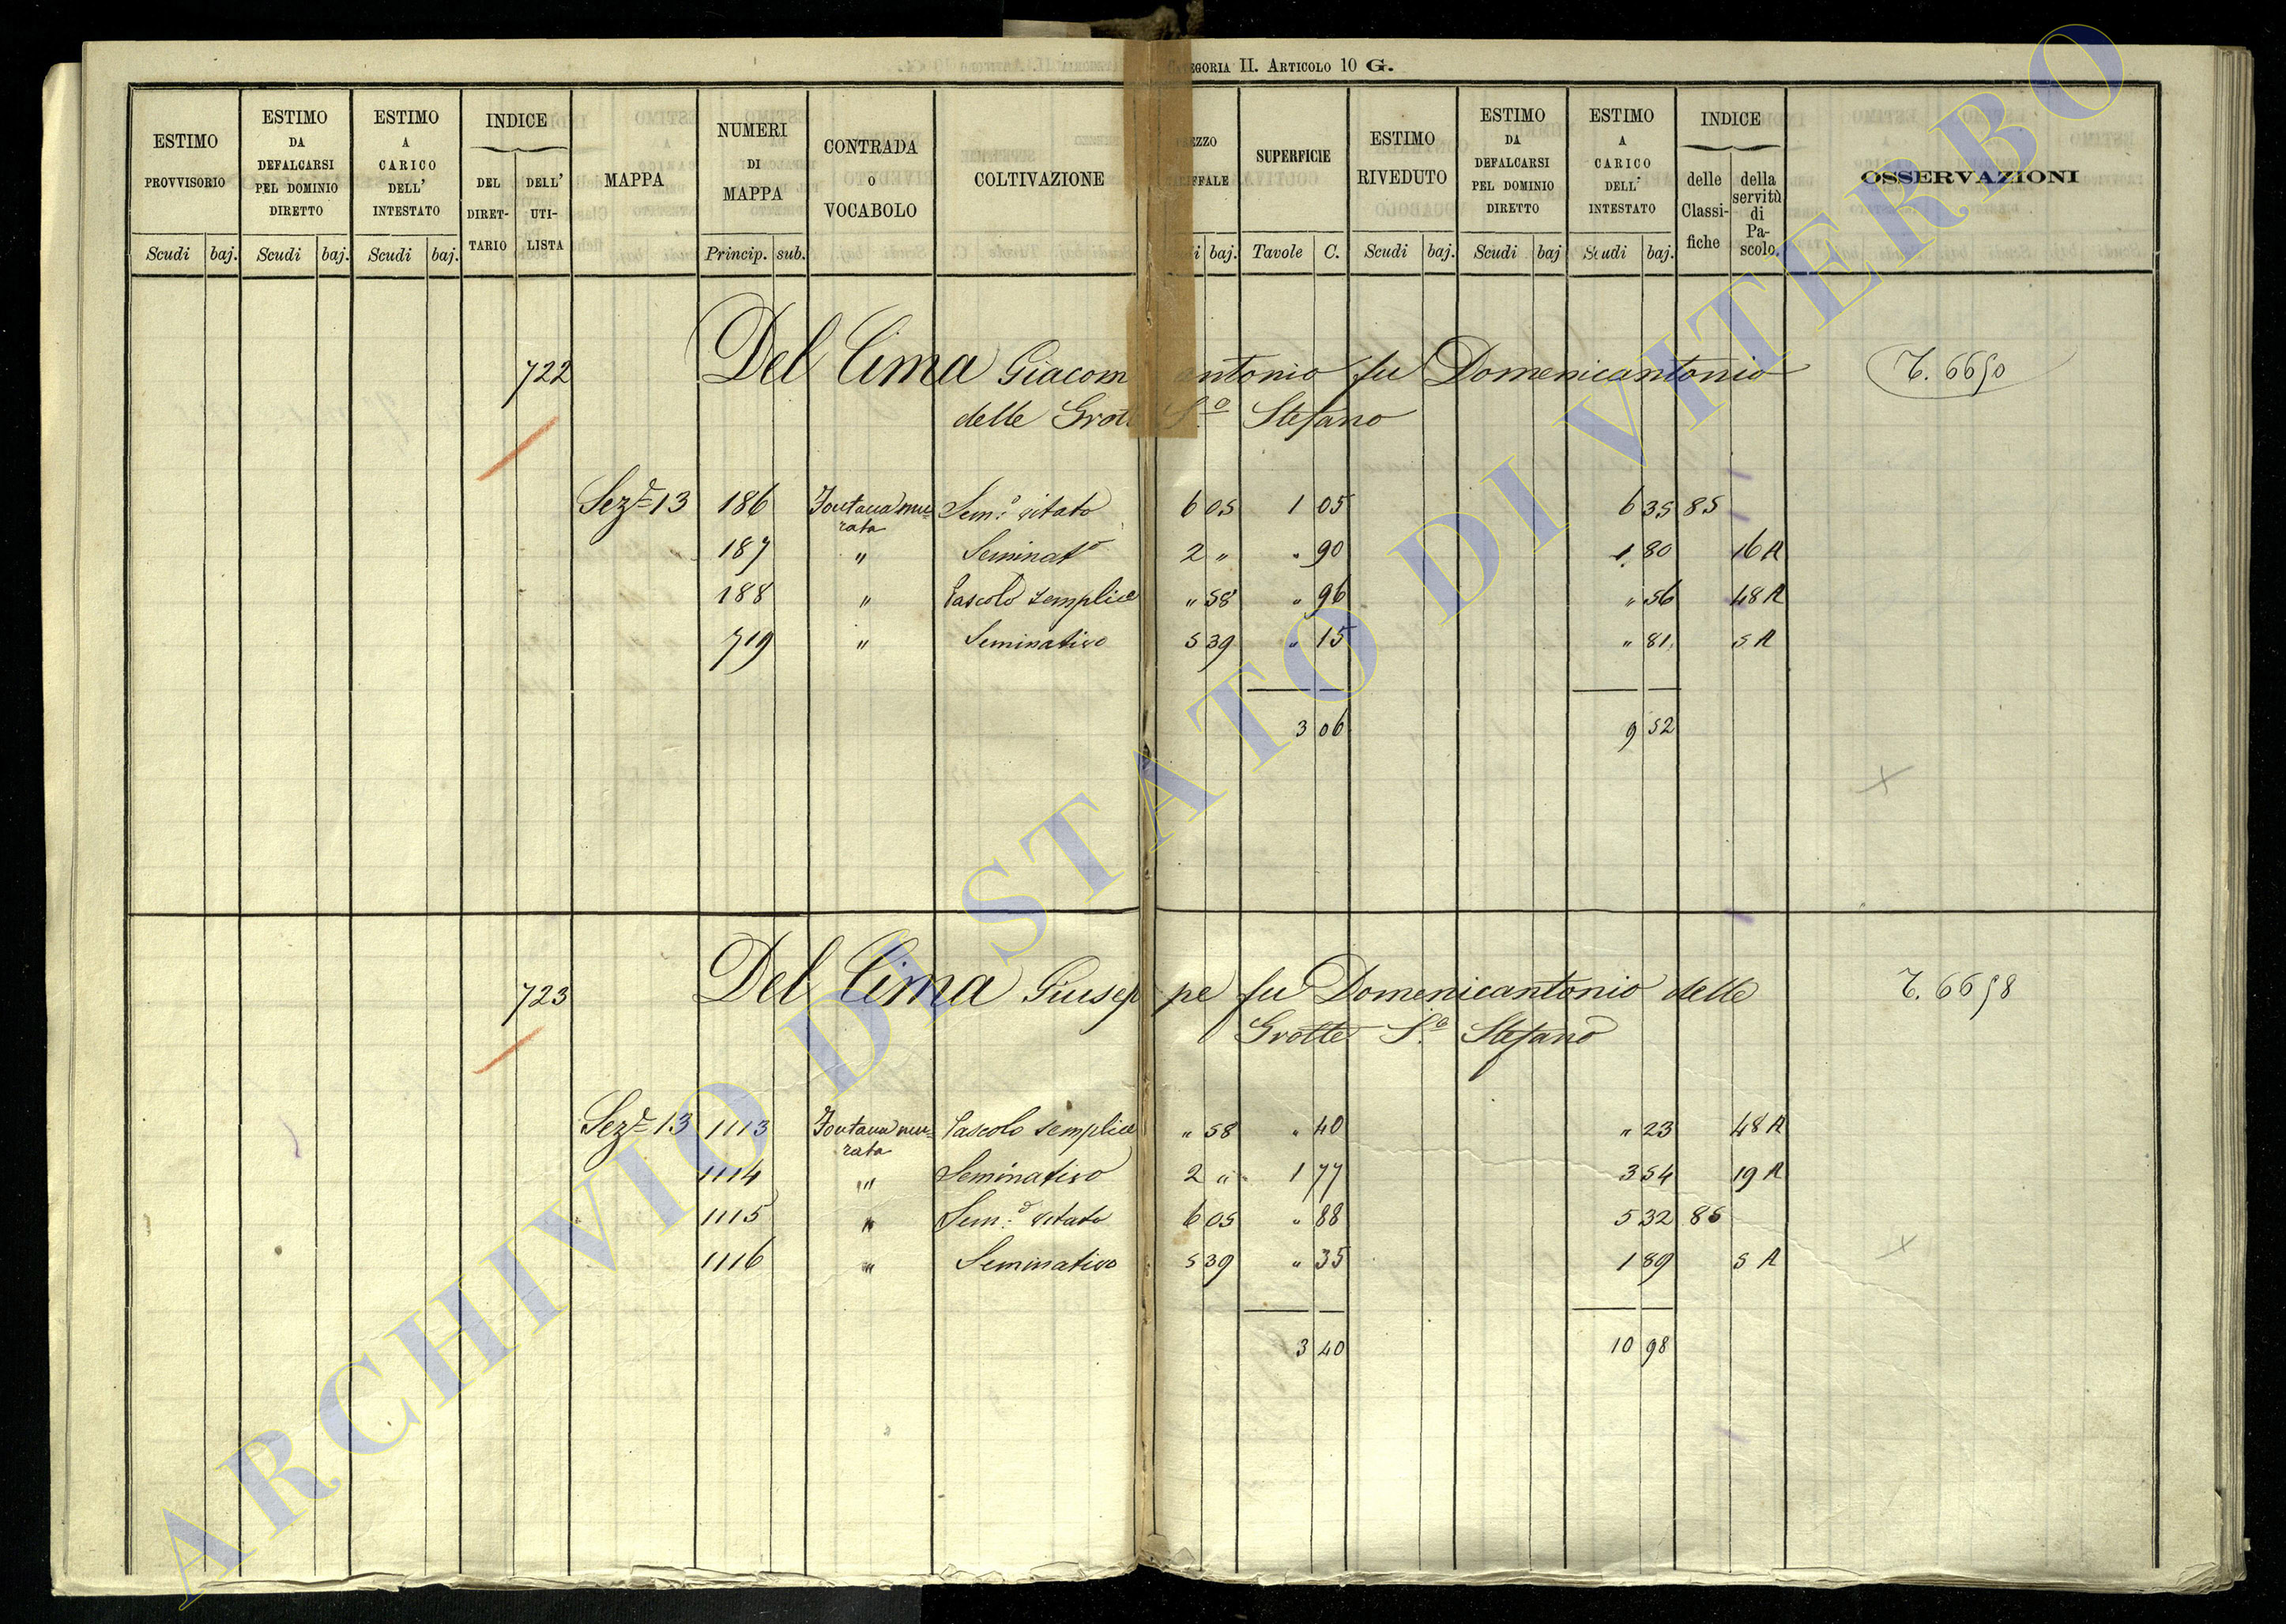 CATEGORIA II. ARTICOLO 10 G.
ESTIMO PROVVISORIO Scudi baj.
ESTIMO DA DEFALCARSI PEL DOMINIO DIRETTO Scudi baj.
ESTIMO A CARICO DELL' INTESTATO Scudi baj.
INDICE DEL DIRET-TARIO DELL' UTI-LISTA
MAPPA
NUMERI DI MAPPA Princip. sub.
CONTRADA O VOCABOLO
COLTIVAZIONE
baj.
SUPERFICIE Tavole C.
ESTIMO RIVEDUTO Scudi baj.
ESTIMO DA DEFALCARSI PEL DOMINIO DIRETTO Scudi baj
ESTIMO A CARICO DELL' INTESTATO Scudi baj.
INDICE delle Classi-fiche della servitù di Pa-scolo.
OSSERVAZIONI
722 Del Cima Giacom antonio fu Domenicantonio
delle Grott S.o Stefano
Sez.e 13 186 Fontana mu= Sem:o vitato 6 05 1 05 6 35 85
rata
187 " Seminat.o 2 " " 90 1 80 16 A
188 " Pascolo semplice " 58 " 96 " 56 48 A
719 " Seminativo 5 39 " 15 " 81 5 A
3 06 9 52
723 Del Cima Giusep pe fu Domenicantonio delle
Grotte S.o Stefano
Sez.e 13 1113 Fontana mu= Pascolo semplice " 58 " 40 " 23 48 A
rata
1114 " Seminativo 2 " 1 77 3 54 19 A
1115 " Sem:o vitato 6 05 " 88 5 32 85
1116 " Seminativo 5 39 " 35 1 89 5 A
3 40 10 98
ARCHIVIO DI STATO DI VITERBO